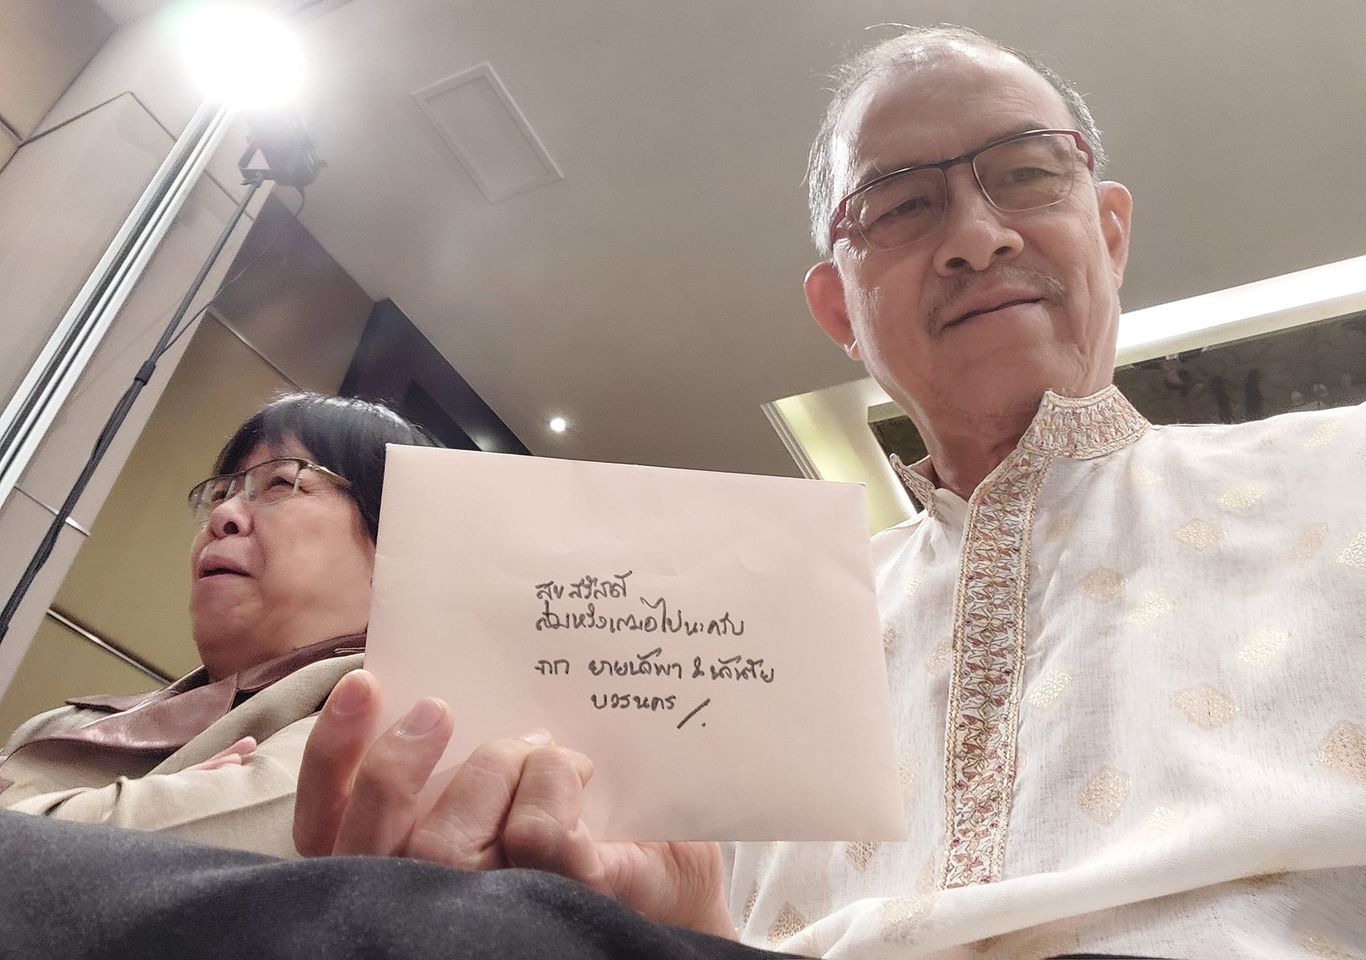 สุขสวัสดิ์
สมหวังเสมอไปนะครับ
จาก ยายนัดพา & นันชัย
บวรนคร /.